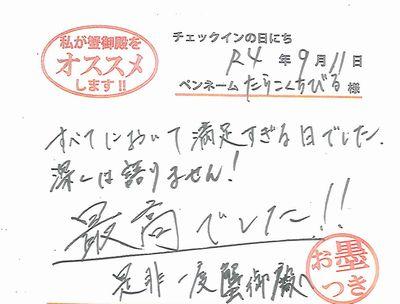 私が蟹御殿を
オススメ
します!!
チェックインの日にち
R4年9月11日
ペンネーム たらこくちびる 様
すべてにおいて満足すぎる日でした.
深くは語りません!
最高でした!!
是非一度蟹御殿へ
お墨
つき